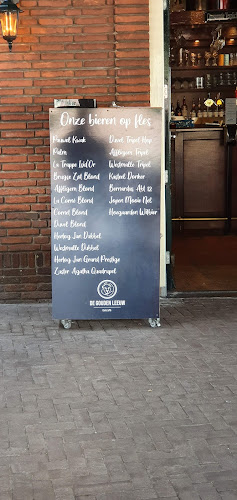 Onze bieren op fles
Pauwel Kwak
Palm
La Trappe Isid'Or
Brugse Zot Blond
Affligem Blond
La Corne Blond
Cornet Blond
Duvel Blond
Hertog Jan Dubbel
Westmalle Dubbel
Hertog Jan Grand Prestige
Zuster Agatha Quadrupel
Duvel Tripel Hop
Affligem Tripel
Westmalle Tripel
Kasteel Donker
Bernardus Abt 12
Jopen Mooie Nel
Hoegaarden Witbier
DE GOUDEN LEEUW